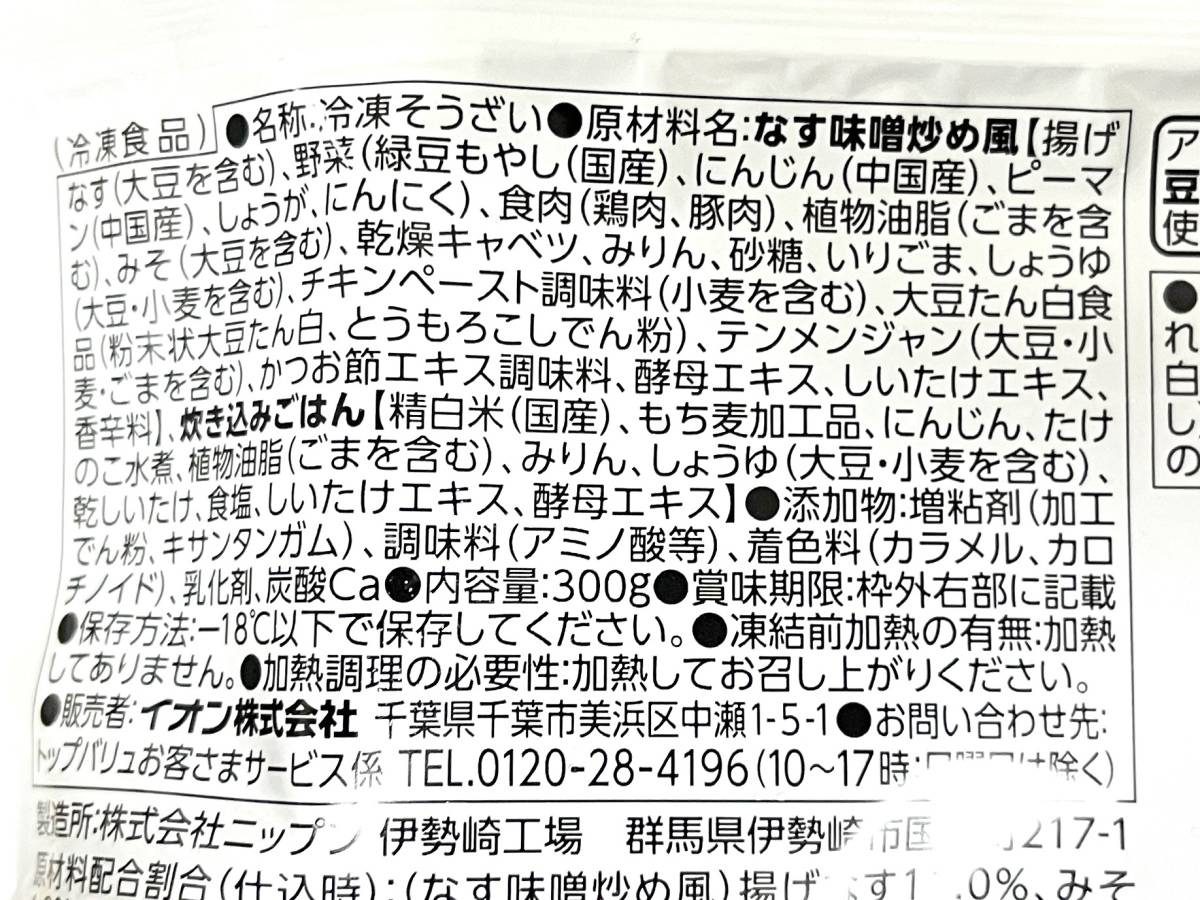 (冷凍食品) ●名称:冷凍そうざい●原材料名:なす味噌炒め風【揚げ
なす(大豆を含む)、野菜(緑豆もやし(国産)、にんじん(中国産)、ピーマ
ン(中国産)、しょうが、にんにく)、食肉(鶏肉、豚肉)、植物油脂(ごまを含
む)、みそ(大豆を含む)、乾燥キャベツ、みりん、砂糖、いりごま、しょうゆ
(大豆・小麦を含む)、チキンペースト調味料(小麦を含む)、大豆たん白食
品(粉末状大豆たん白、とうもろこしでん粉)、テンメンジャン(大豆・小
麦・ごまを含む)、かつお節エキス調味料、酵母エキス、しいたけエキス、
香辛料】、炊き込みごはん【精白米(国産)、もち麦加工品、にんじん、たけ
のこ水煮、植物油脂(ごまを含む)、みりん、しょうゆ(大豆・小麦を含む)、
乾しいたけ、食塩、しいたけエキス、酵母エキス】●添加物:増粘剤(加工
でん粉、キサンタンガム)、調味料(アミノ酸等)、着色料(カラメル、カロ
チノイド)、乳化剤、炭酸Ca●内容量:300g●賞味期限:枠外右部に記載
●保存方法:−18℃以下で保存してください。●凍結前加熱の有無:加熱
してありません。●加熱調理の必要性:加熱してお召し上がりください。
●販売者:イオン株式会社 千葉県千葉市美浜区中瀬1-5-1●お問い合わせ先:
トップバリュお客さまサービス係 TEL.0120-28-4196(10〜17時:日曜日は除く)
製造所:株式会社ニップン 伊勢崎工場 群馬県伊勢崎市国 217-1
原材料配合割合(仕込時):(なす味噌炒め風)揚げなす1 .0%、みそ
ア
豆
使
●
れ
白
し
の